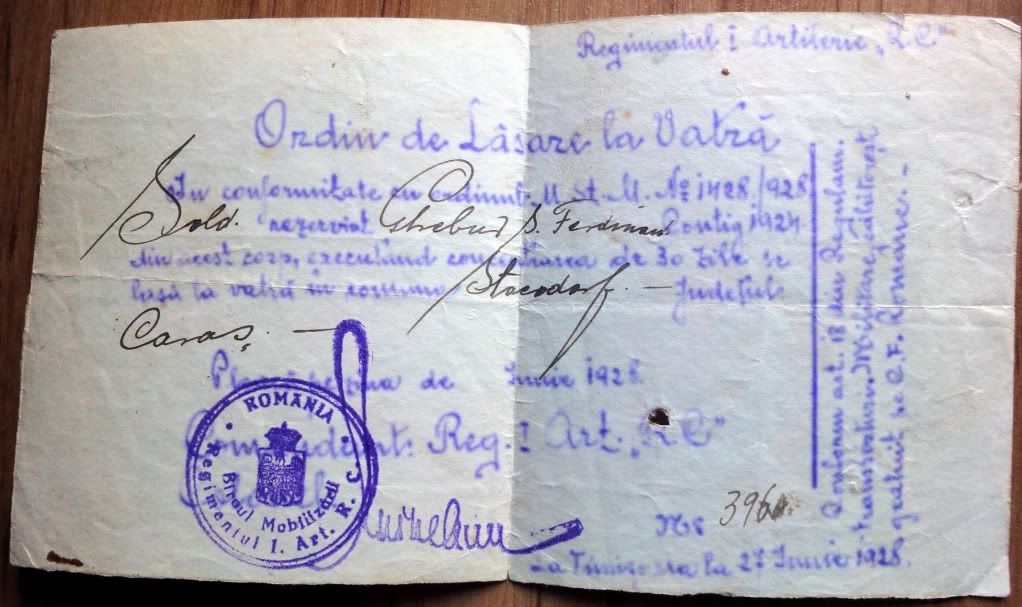 Regimentul I Artilerie „R.C"
Ordin de Lăsare la Vatră
In conformitate cu ordinul M. St. M. No 1428/928
Sold. rezervist Ferdinand Contig. 1924
din acest corp, executând concentrarea de 30 Zile se
lasă la vatră în comuna Stocodorf. — Județul
Caraș. —
de Iunie 1928.
Comandant: Reg. I Art. „R.C"
ROMÂNIA
Regimentul 1. Art. R. C.
Biroul Mobilizării
No 396
La Timișoara la 27 Iunie 1928.
Conform art. 18 din Regulam.
transporturi. Militare, călătorește
gratuit pe C.F. Române. -